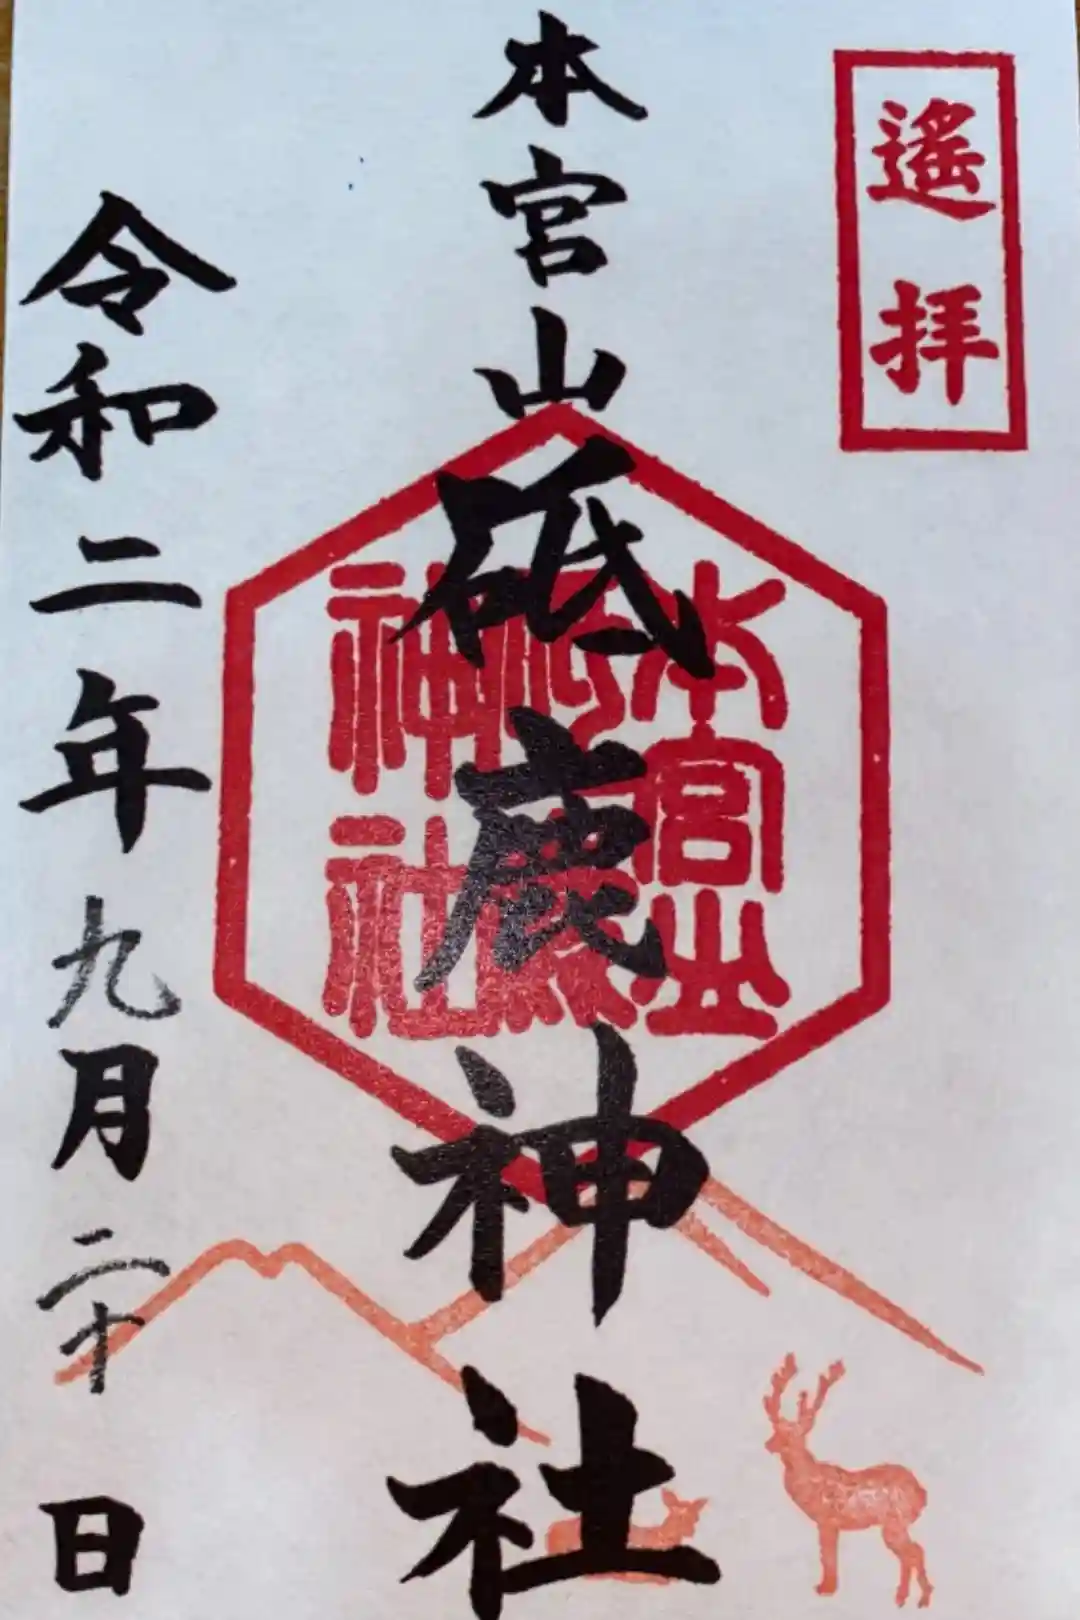 遙拝
本宮山砥鹿神社
本宮山
砥鹿
神社
令和二年九月二十日